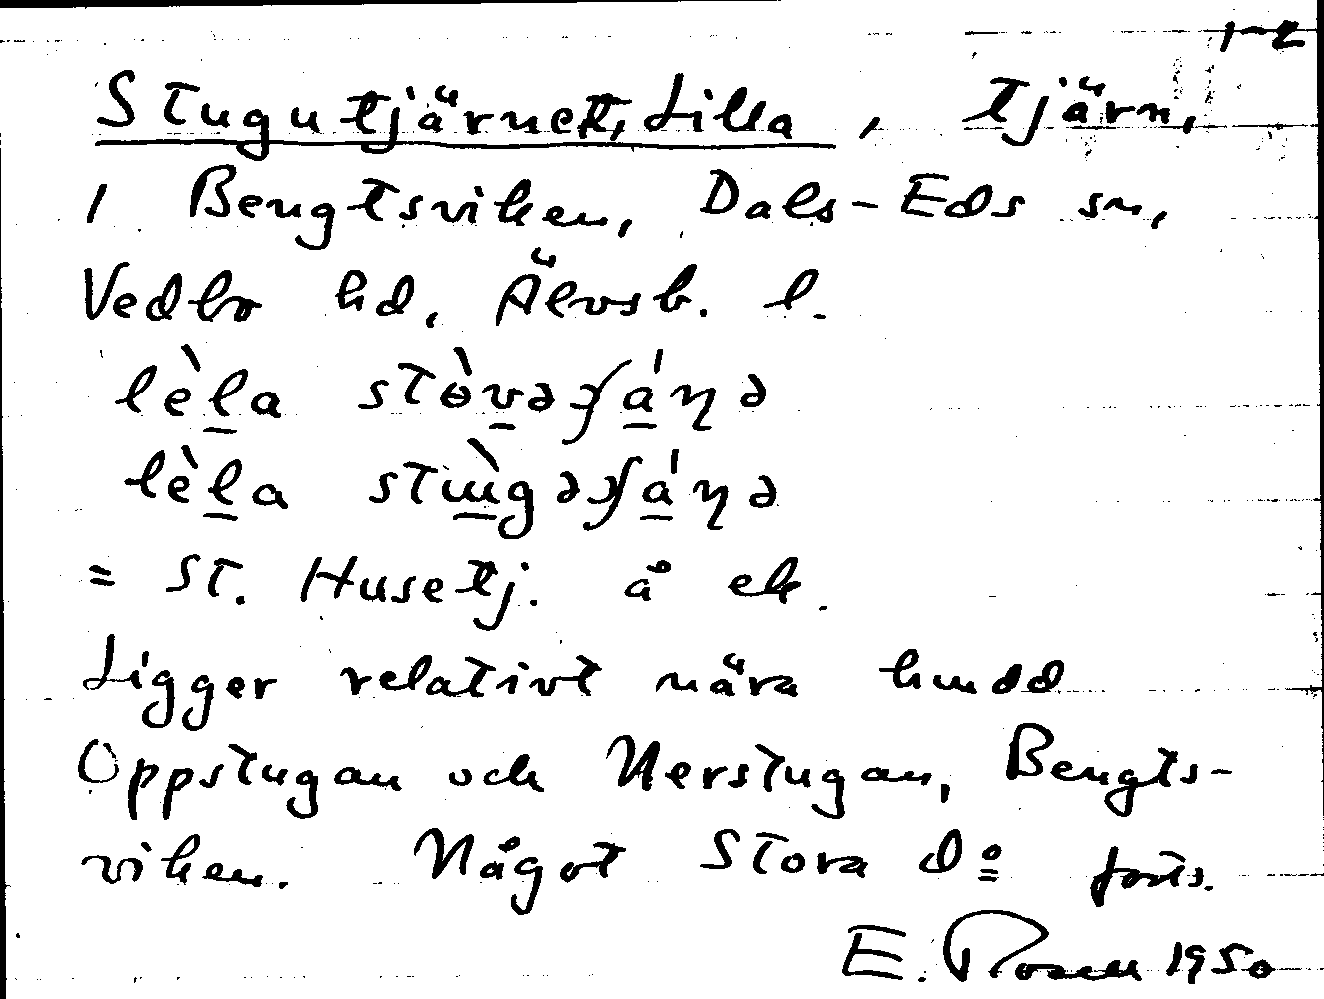 1-2
Stugutjärnet, Lilla, tjärn,
i Bengtsviken, Dals-Eds sn,
Vedbo hd, Älvsb. l.
lèla
lèla
= St. Husetj. å ek.
Ligger relativt nära hmdd
Oppstugan och Nerstugan, Bengts-
viken. Något Stora do forts.
E. Rosell 1950